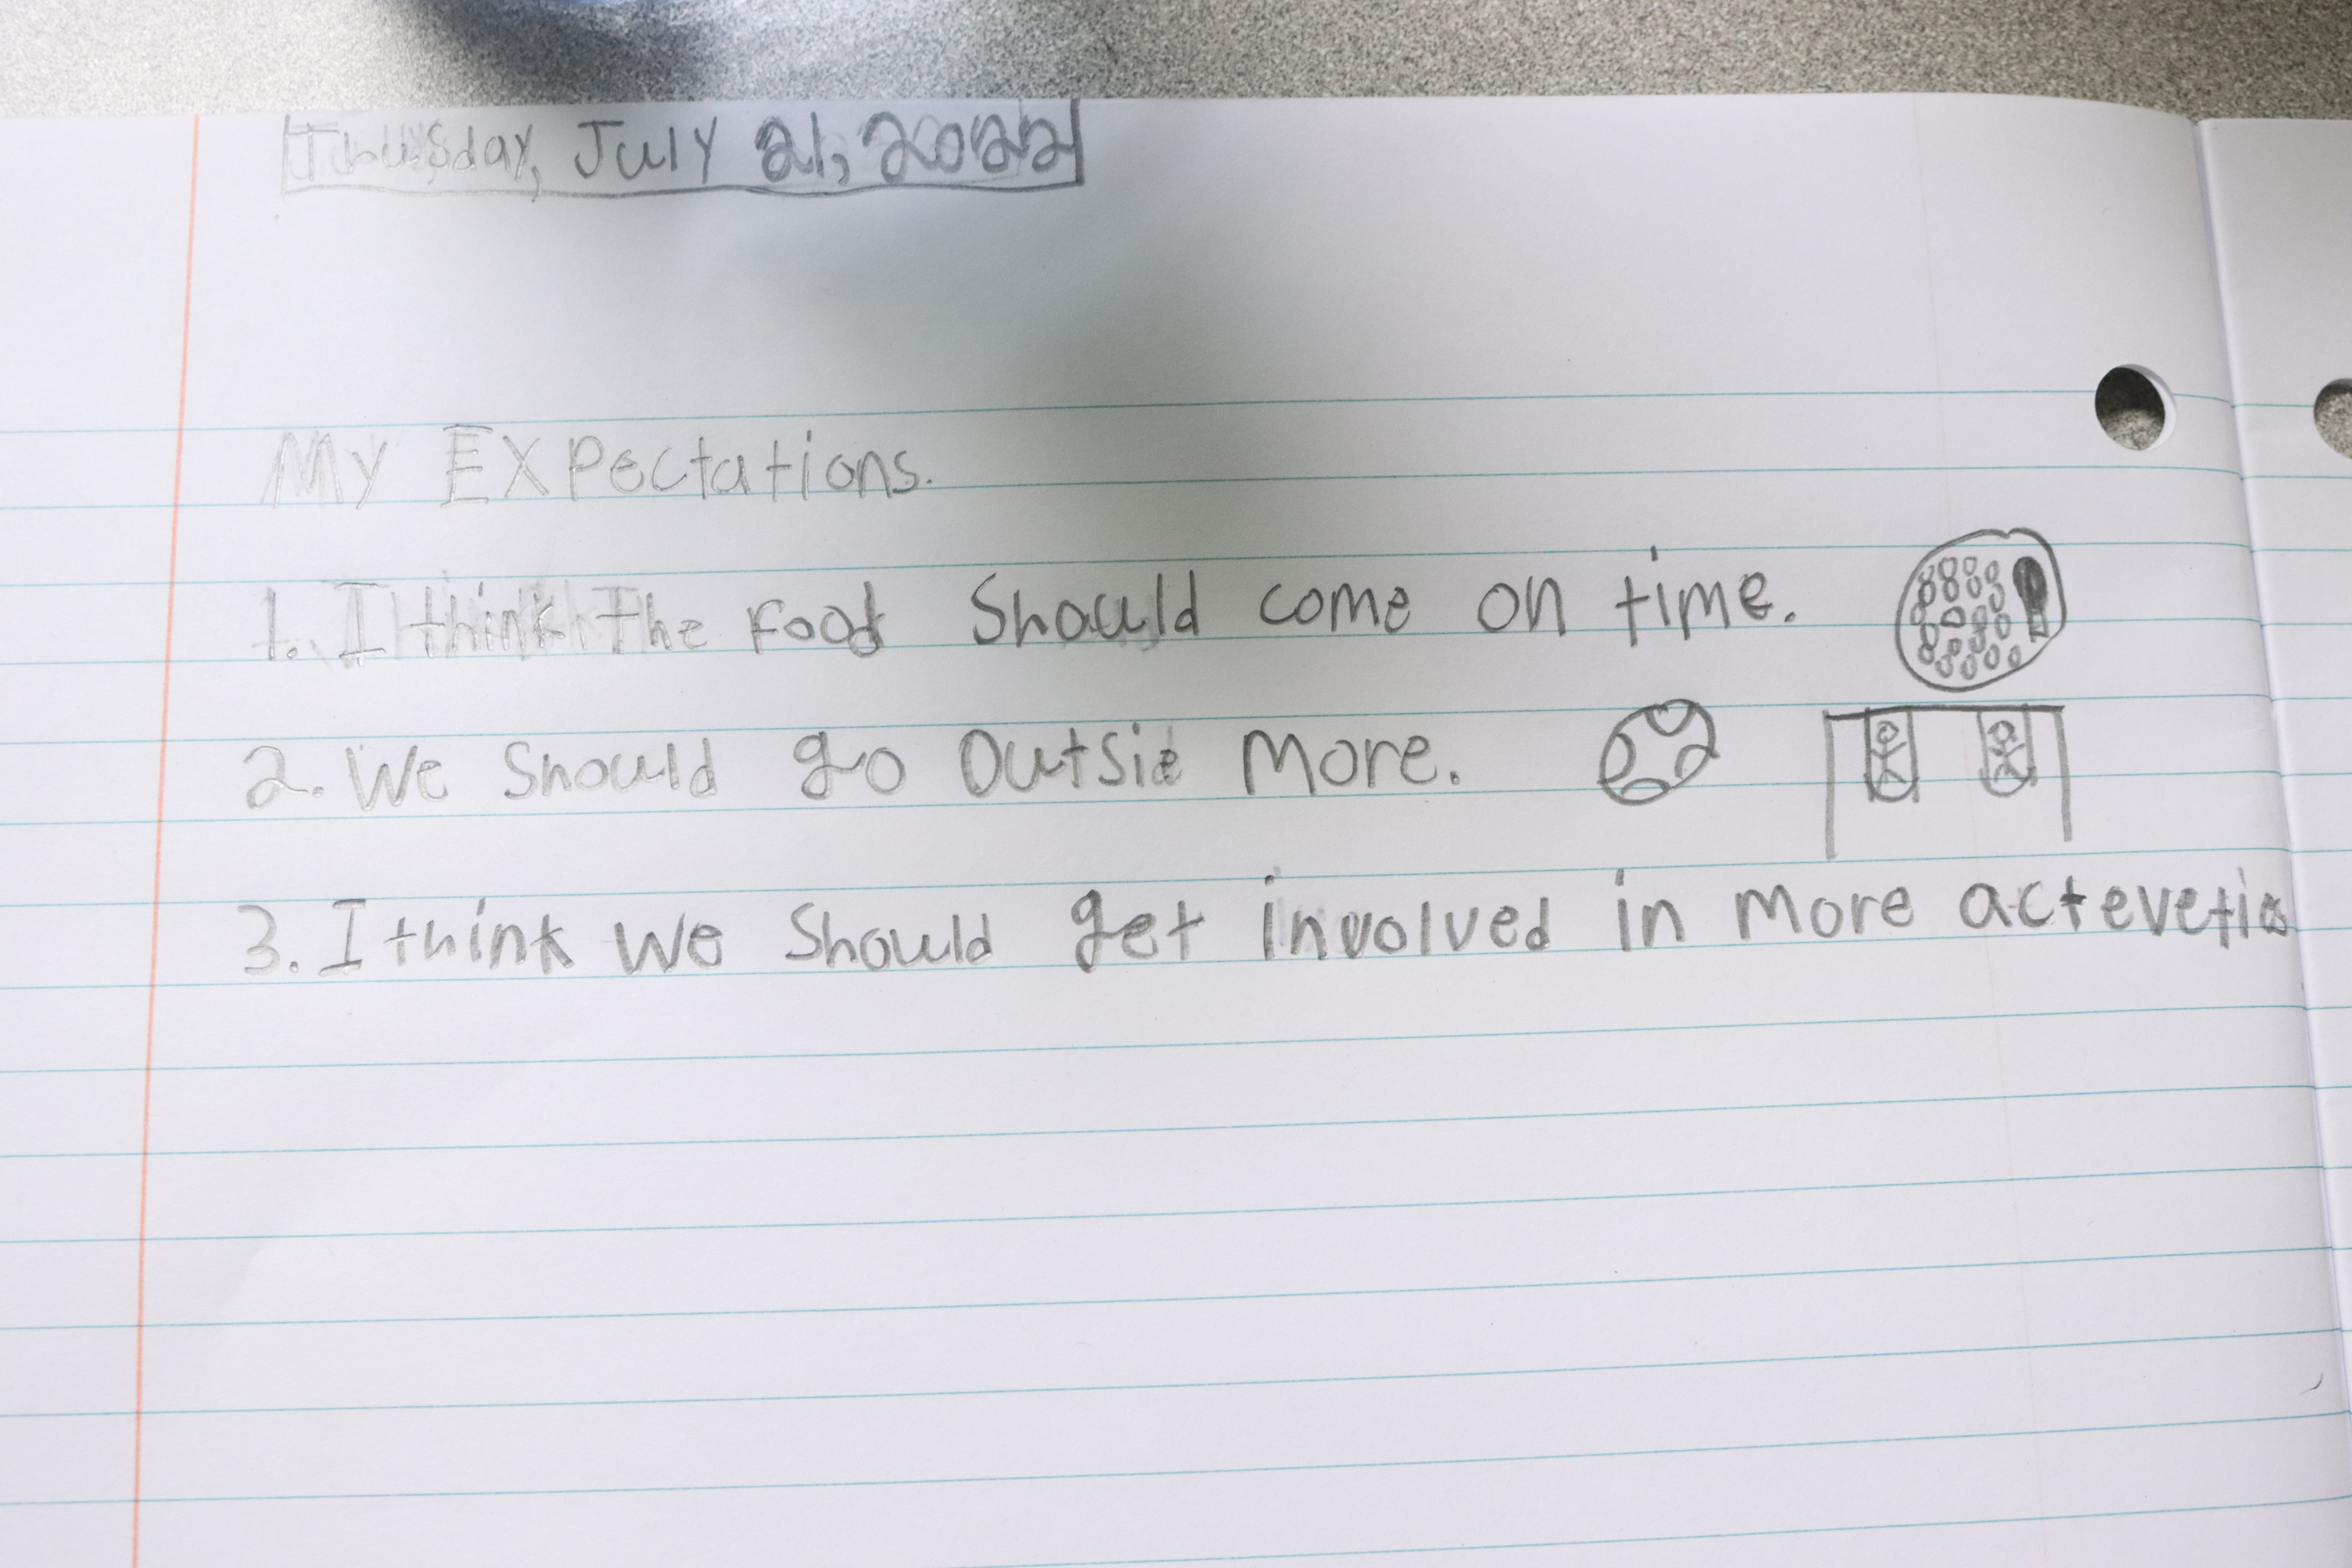 Thursday, July 21, 2022
My Expectations.
1. I think The food Should come on time.
2. We Should go Outsie More.
3. I think we Should get involved in more acteveties